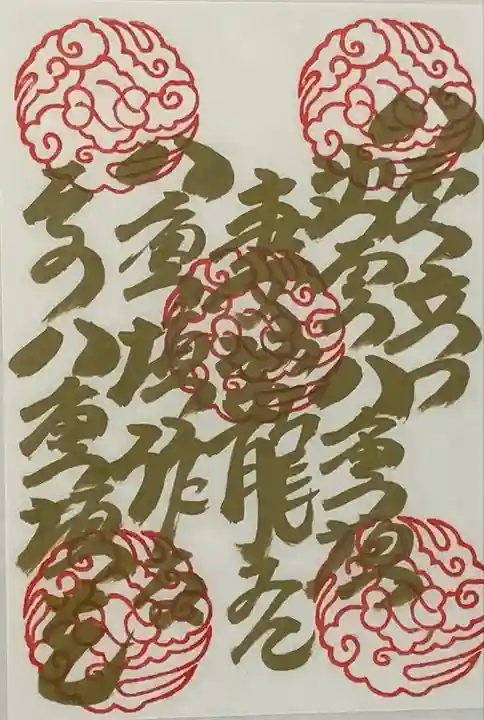 八雲立つ
出雲八重垣
妻籠
八重垣作る
その八重垣を